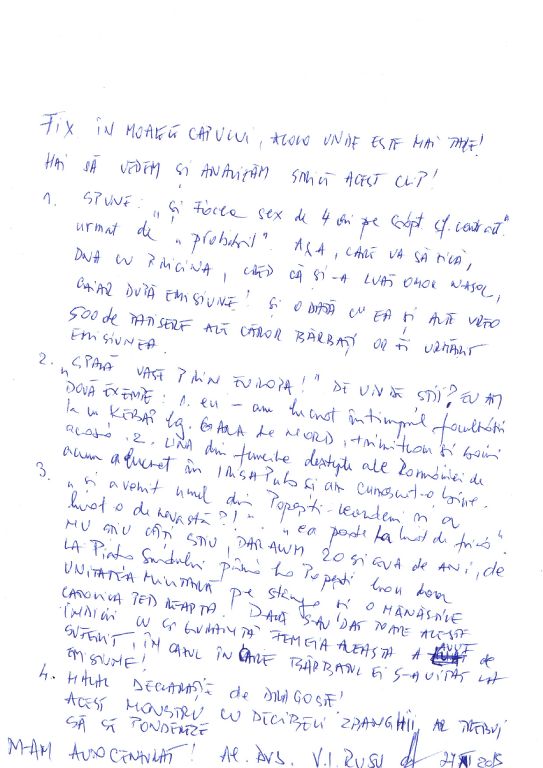 FIX ÎN MOALELE CAPULUI, ACOLO UNDE ESTE MAI TARE!
HAI SĂ VEDEM ȘI ANALIZĂM STRICT ACEST CLIP!
1. SPUNE: „și făcea sex de 4 ori pe săpt cf. contract"
urmat de „probabil". AȘA, CARE VA SĂ ZICĂ,
DNA CU PRICINA, CRED CĂ ȘI-A LUAT OMOR NASOL,
CHIAR DUPĂ EMISIUNE! ȘI ODATĂ CU EA ȘI ALTE VREO
500 de ALE CĂROR BĂRBAȚI OR FI URMĂRIT
EMISIUNEA
2. „SPALĂ VASE PRIN EUROPA!" DE UNDE ȘTII? EU AM
DOUĂ EXEMPLE: 1. eu - am lucrat în timpul facultății
la un KEBAP lg. GARA de NORD, trimiteau și banii
acasă. 2. UNA din femeile deștepte ale României de
acum a lucrat în și am cunoscut-o bine.
3. „și a venit unul din Popești-Leordeni și a
luat o de nevastă?!" .. „ea poate l-a luat de frică".
NU ȘTIU CÂȚI ȘTIU, DAR ACUM 20 ȘI CEVA DE ANI, de
LA Piața Sudului până la Popești era doar
UNITATEA MILITARĂ pe stânga și O MĂNĂSTIRE
CATOLICĂ PE DREAPTA! DACĂ S-AU DAT TOATE ACESTE
INDICII CU SIGURANȚĂ FEMEIA ACEASTA A AVUT de
SUFERIT, ÎN CAZUL ÎN CARE BĂRBATUL EI S-A UITAT LA
EMISIUNE!
4. HALAL DECLARAȚIE de DRAGOSTE!
ACEST MONSTRU CU DECIBELI ZBANGHII, AR TREBUI
SĂ SE PONDEREZE
M-AM AUTOCENZURAT! AL. DVS. V.I. RUSU 27 XI 2015